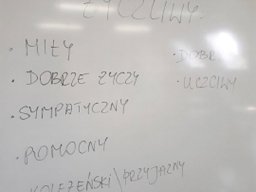 ŻYCZLIWY
· MIŁY
· DOBRZE ŻYCZY
· SYMPATYCZNY
· POMOCNY
KOLEŻEŃSKI \ PRZYJAZNY
· DOBRY
· UCZCIWY